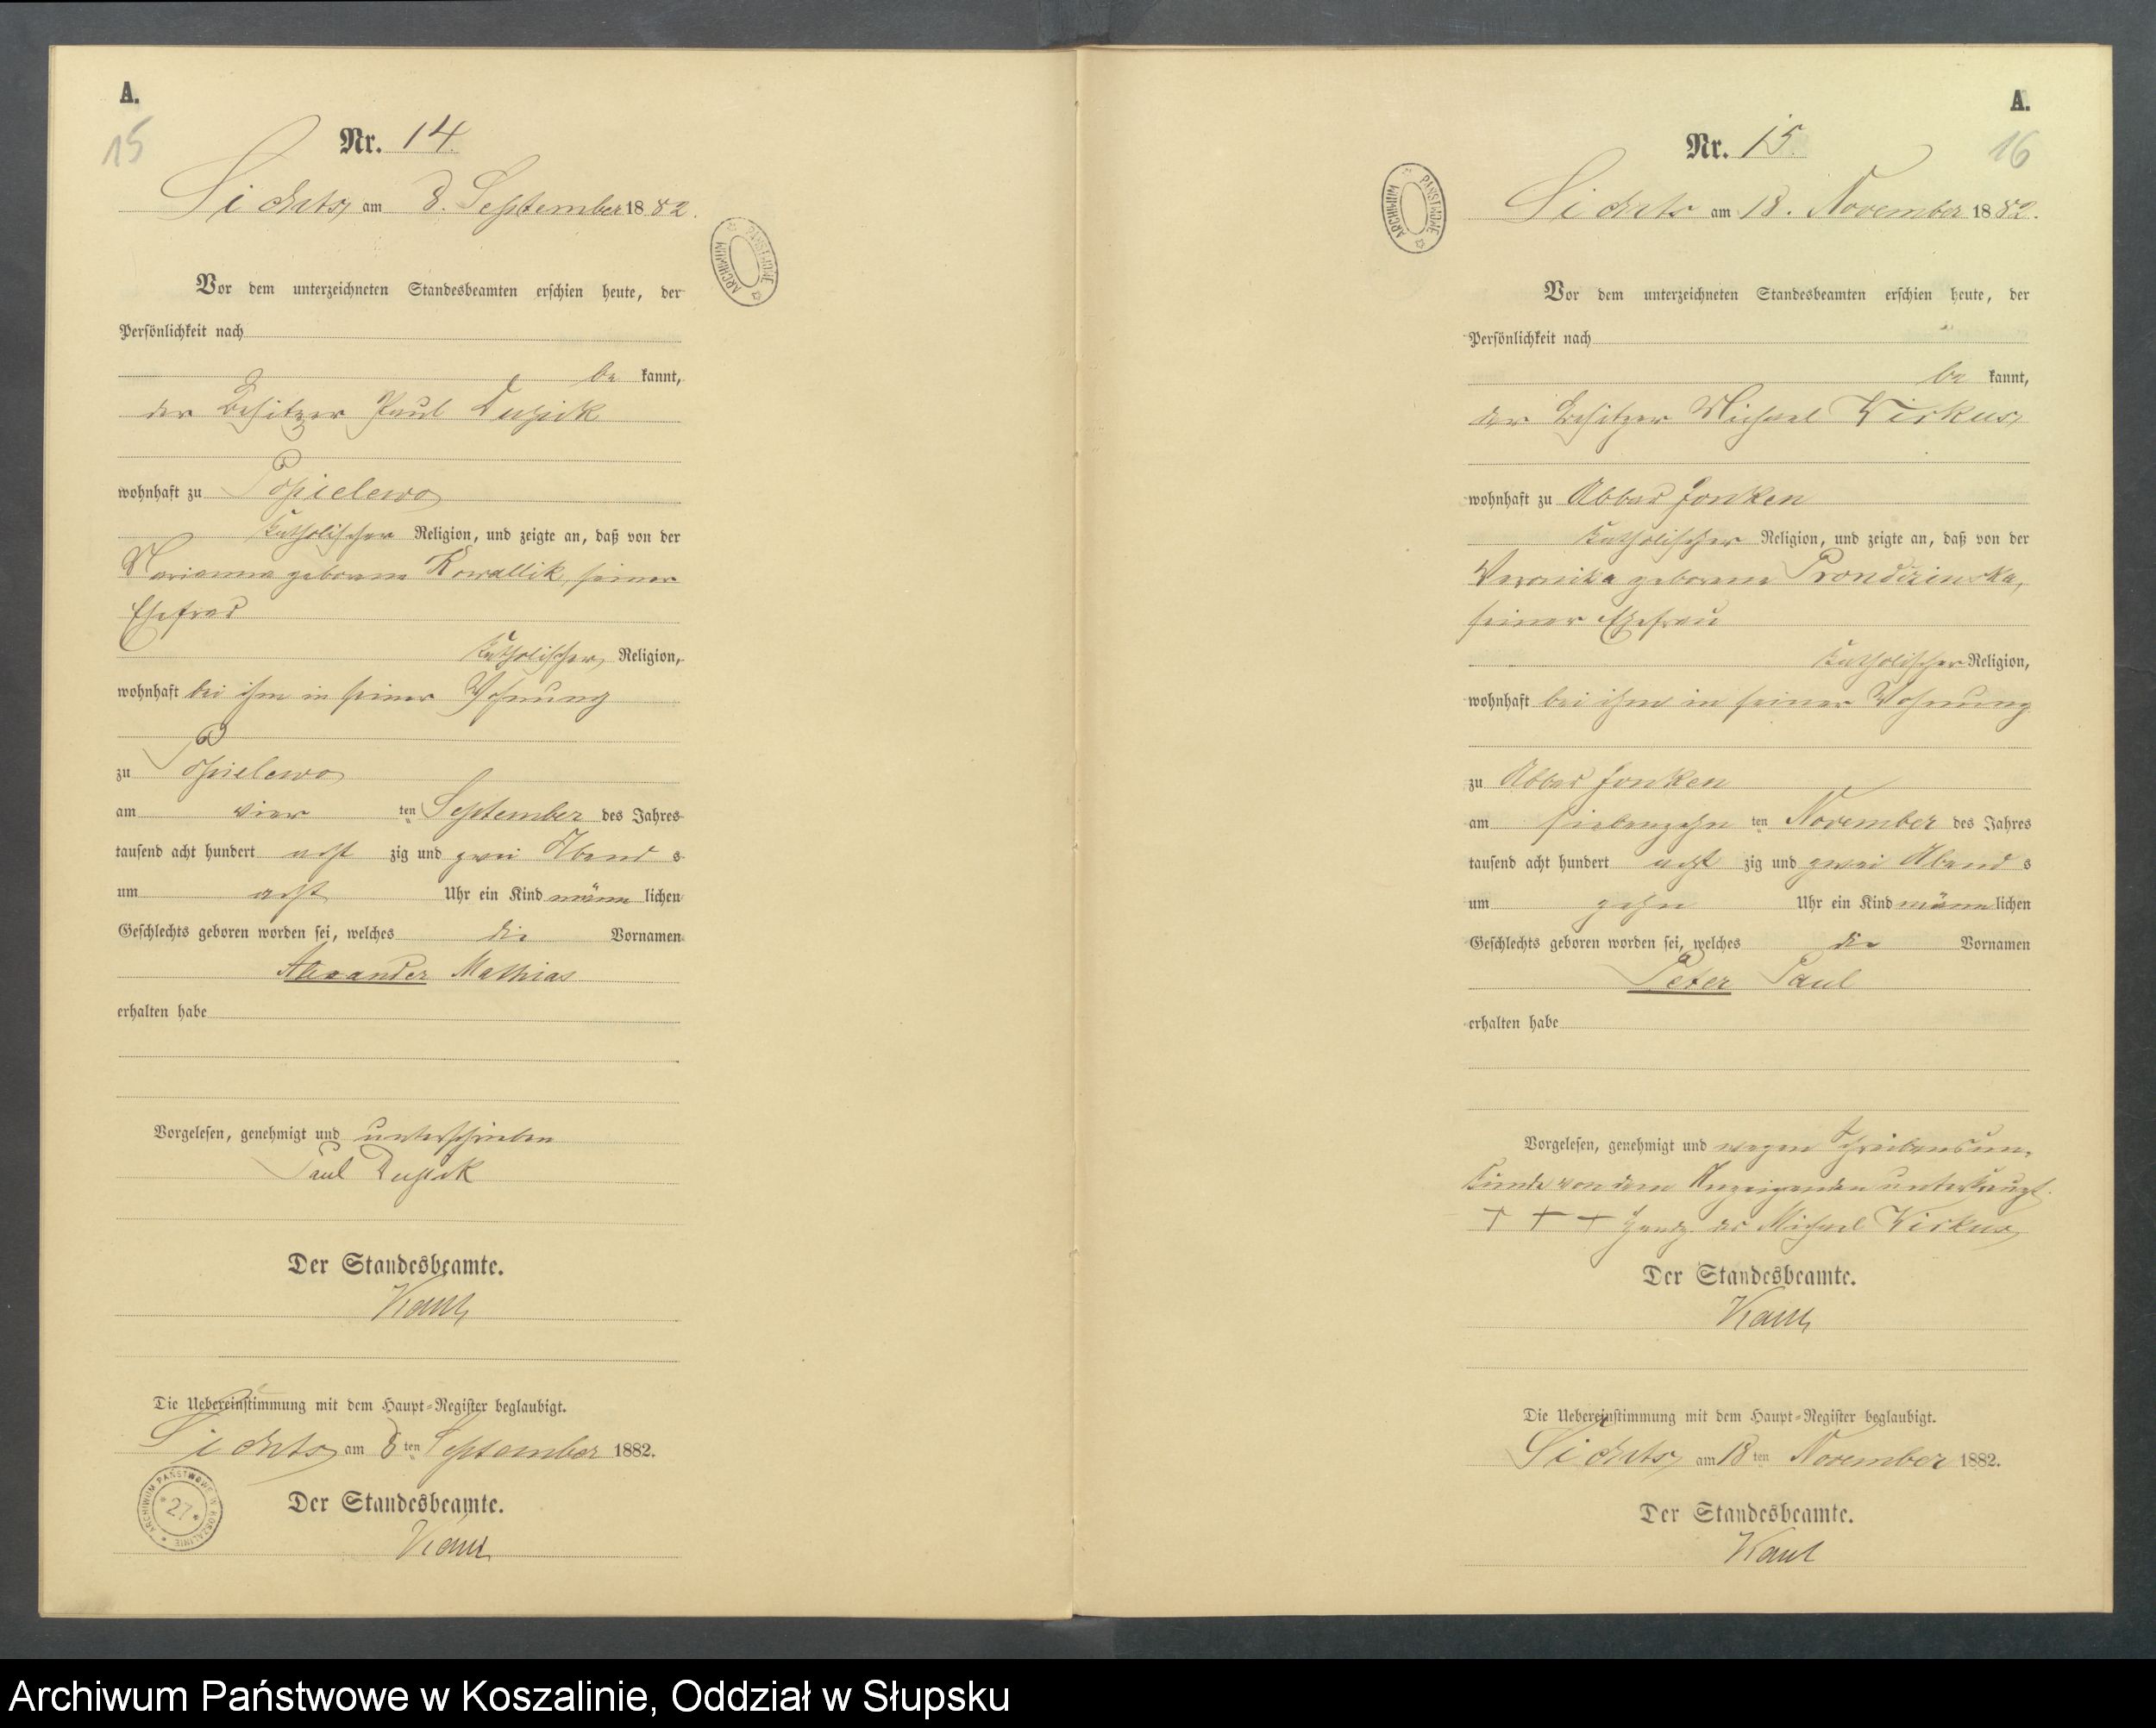 A.
15
Nr. 14.
am 8. September 1882.
ARCHIWUM PAŃSTWOWE
Vor dem unterzeichneten Standesbeamten erschien heute, der
Persönlichkeit nach
be kannt,
der Besitzer Paul
wohnhaft zu
katholischer Religion, und zeigte an, daß von der
Marianna geborene Kowallik, seiner
Ehefrau
katholischer Religion,
wohnhaft bei ihm in seiner Wohnung
zu
am vier ten September des Jahres
tausend acht hundert acht zig und zwei Abend s
um acht Uhr ein Kind männ lichen
Geschlechts geboren worden sei, welches die Vornamen
Alexander Mathias
erhalten habe
Vorgelesen, genehmigt und unterschrieben
Paul
Der Standesbeamte.
Die Uebereinstimmung mit dem Haupt-Register beglaubigt.
am 8 ten September 1882.
Der Standesbeamte.
ARCHIWUM PAŃSTWOWE W KOSZALINIE
* 27 *
A.
16
Nr. 15.
am 18. November 1882.
ARCHIWUM PAŃSTWOWE
Vor dem unterzeichneten Standesbeamten erschien heute, der
Persönlichkeit nach
be kannt,
der Besitzer Michael Wirkus,
wohnhaft zu Abbau
katholischer Religion, und zeigte an, daß von der
Veronika geborene
seiner Ehefrau
katholischer Religion,
wohnhaft bei ihm in seiner Wohnung
zu Abbau
am siebenzehn ten November des Jahres
tausend acht hundert acht zig und zwei Abend s
um zehn Uhr ein Kind männ lichen
Geschlechts geboren worden sei, welches die Vornamen
Peter Paul
erhalten habe
Vorgelesen, genehmigt und wegen Schreibensun-
kunde von dem Anzeigenden unterkreuzt.
+ + + Handz. des Michael Wirkus
Der Standesbeamte.
Die Uebereinstimmung mit dem Haupt-Register beglaubigt.
am 18 ten November 1882.
Der Standesbeamte.
Archiwum Państwowe w Koszalinie, Oddział w Słupsku